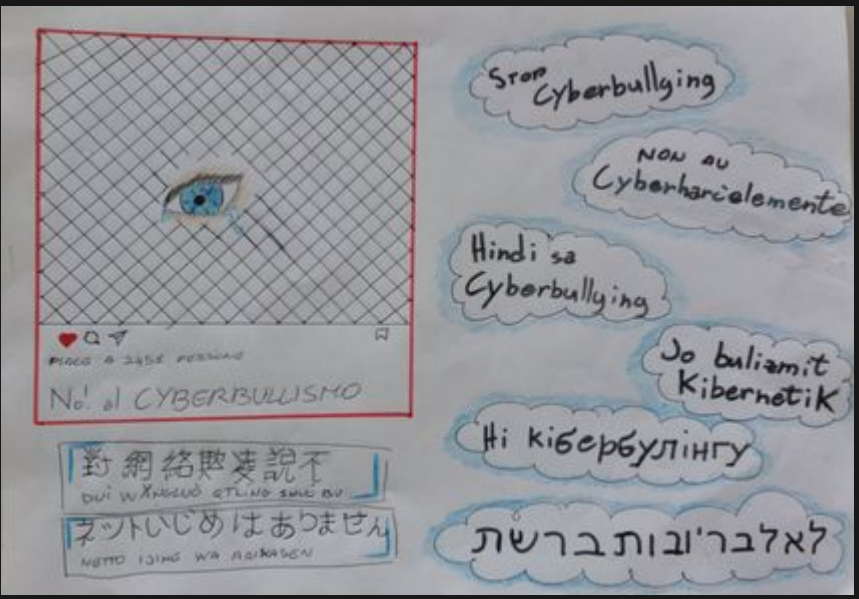 PIACE A 2451 PERSONE
No! al CYBERBULLISMO
對網絡欺凌說不
DUÌ WǍNGLUÒ QTLING SHUO BU
ネットいじめはありません
NETTO IJIME WA ARIMASEN
STOP
Cyberbullging
NON AU
Cyberharcielemente
Hindi sa
Cyberbullying
Jo bulizmit
KibernetiK
Ні кібербулінгу
לאלבר'ובות ברשת